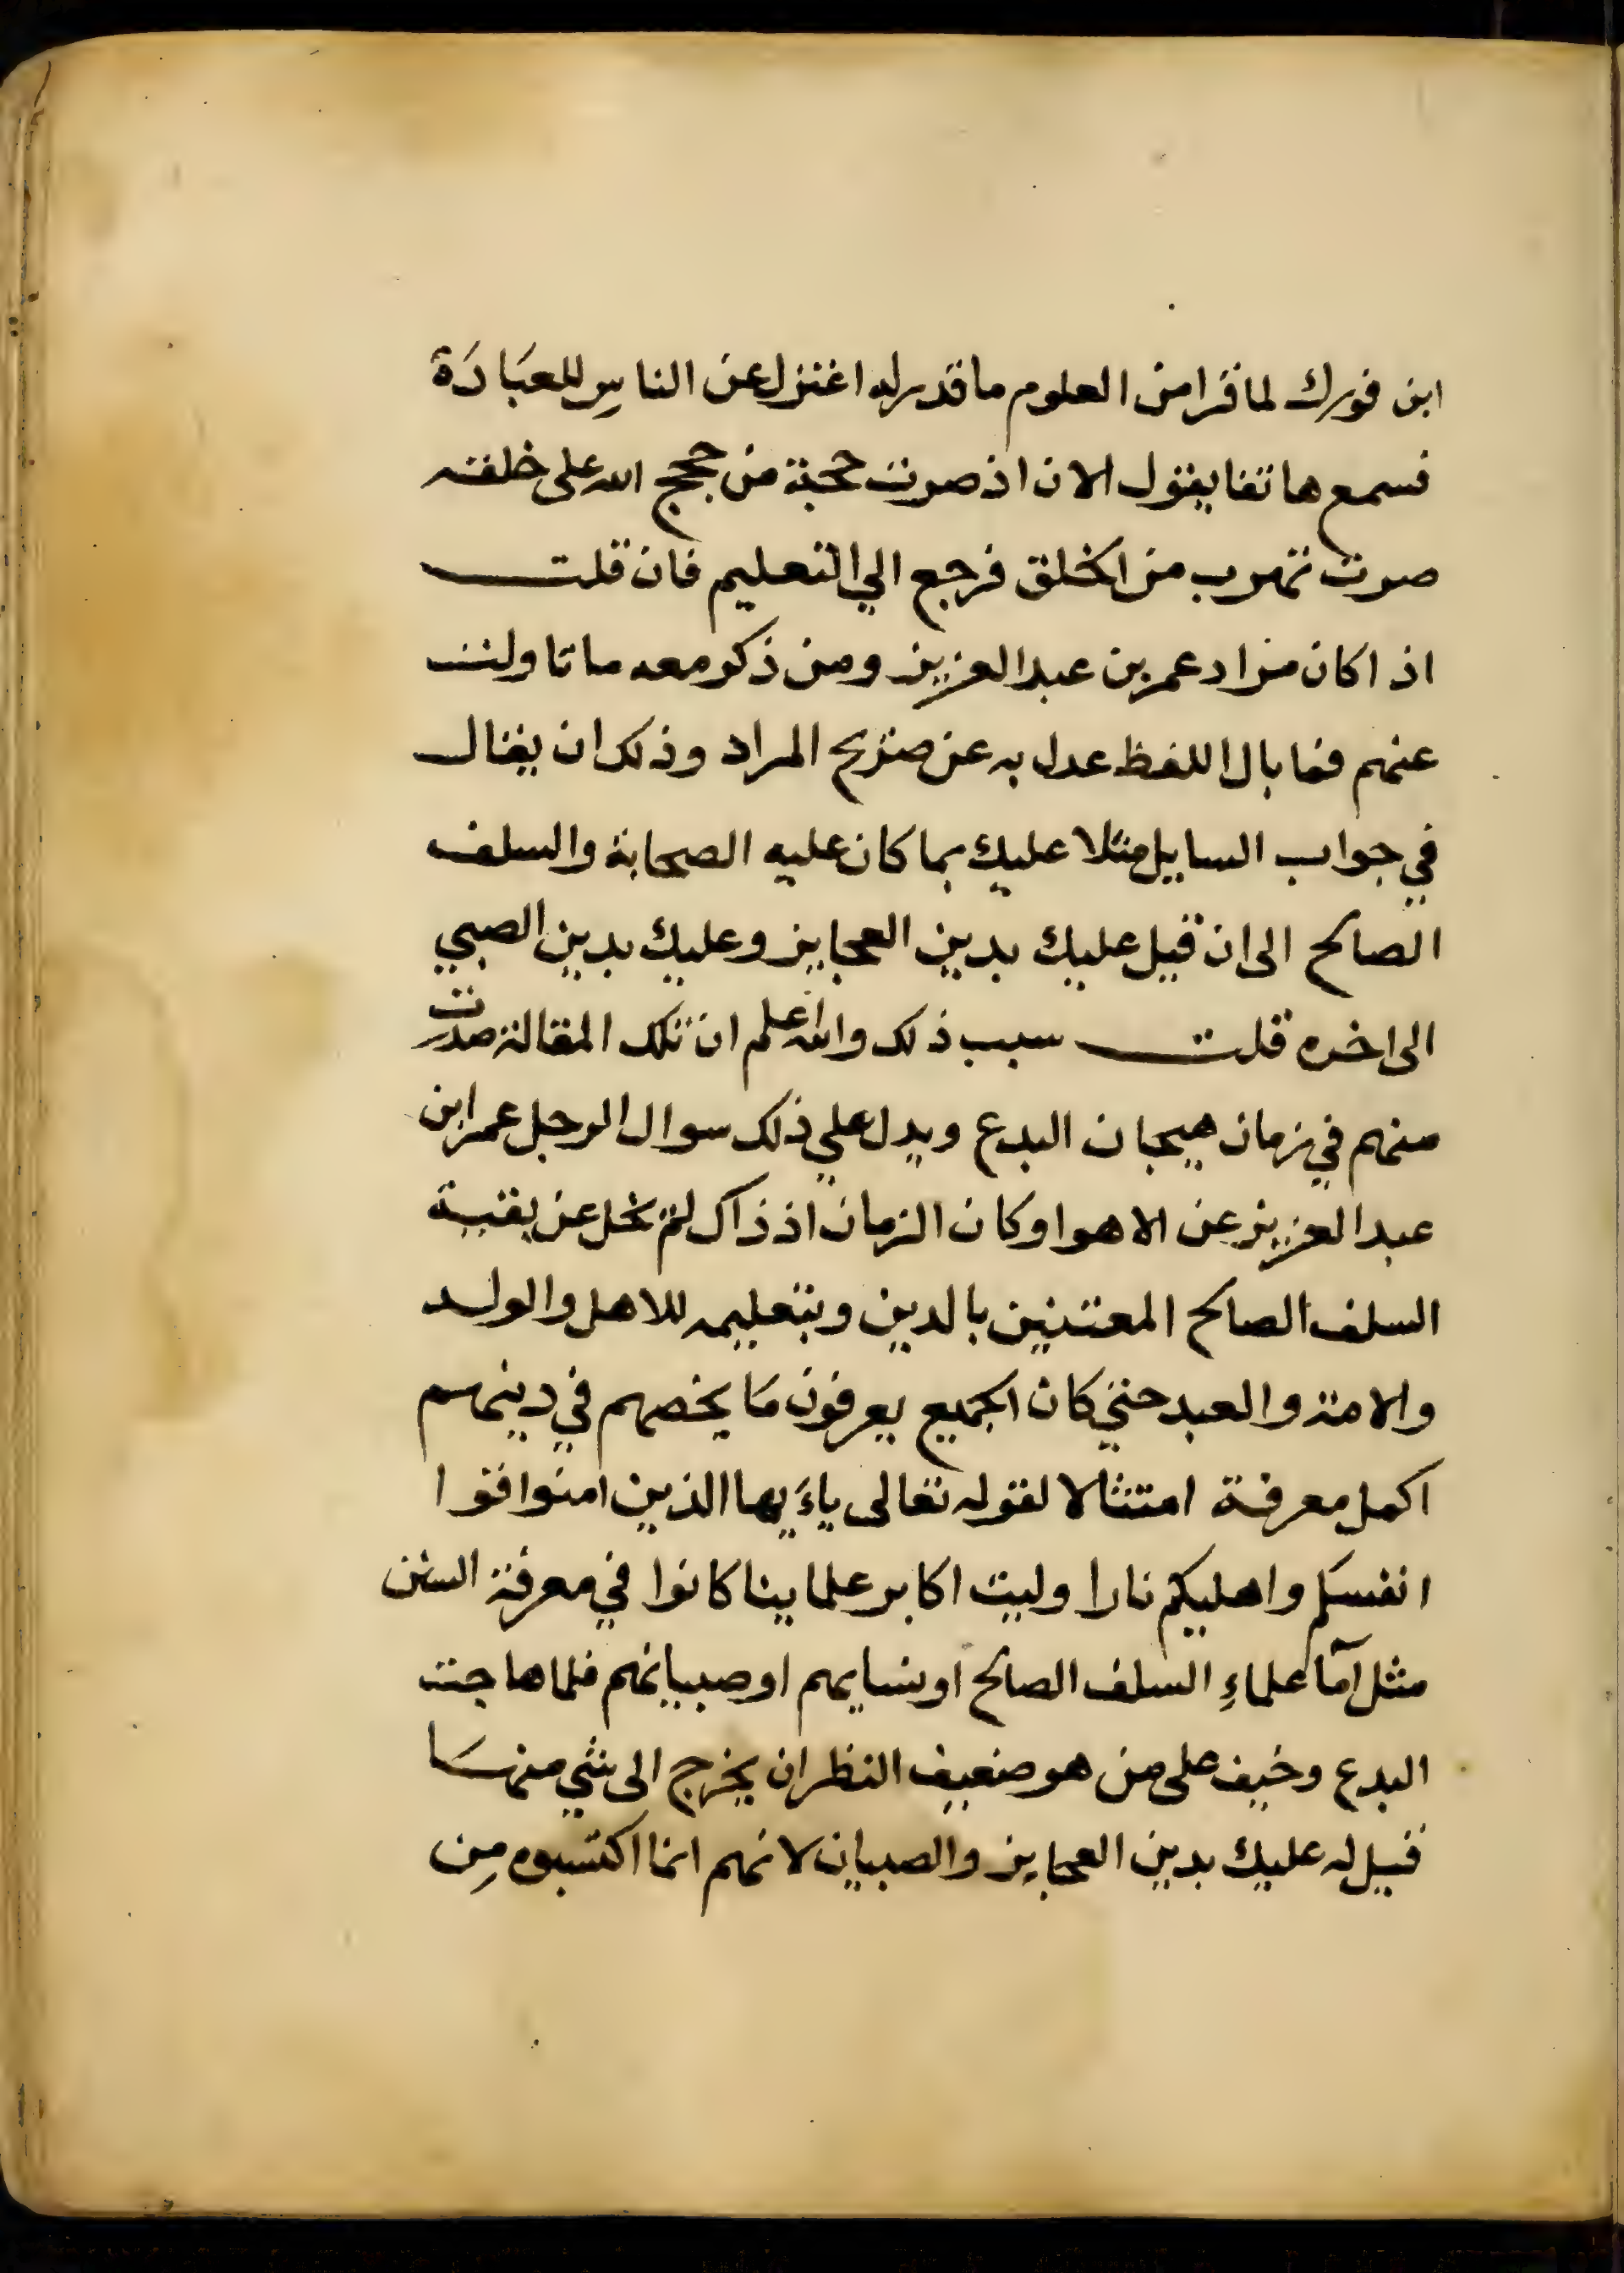 ابن فورك لما قرا من العلوم ما قدر له اعتزل عن الناسِ للعبَادَة
فسمع هاتفا يقول الان اذ صرت حجة من حجج الله على خلقه
صرت تهرب من الخلق فرجع الي التعليم فان قلت
اذا كان مراد عمر بن عبد العزيز ومن ذكر معه ما تاولت
عنهم فما بال اللفظ عدل به عن صريح المراد وذلك ان يقال
في جواب السايل مثلا عليك بما كان عليه الصحابة والسلف
الصالح الى ان قيل عليك بدين العجايز وعليك بدين الصبي
الى اخره قلت سبب ذلك والله اعلم ان تلك المقالة صدرت
منهم في زمان هيجان البدع ويدل علي ذلك سوال الرجل عمر ابن
عبد العزيز عن الاهوا وكان الزمان اذ ذاك لم تخل عن بقية
السلف الصالح المعتنين بالدين وبتعليمه للاهل والولد
والامة والعبد حتي كان الجميع يعرفون مَا يخصهم في دينهم
اكمل معرفة امتثالا لقوله تعالى ياءَيها الذين امنوا قوا
انفسكم واهليكم نارا وليت اكابر علماينا كانوا في معرفة السنن
مثل آما علماءِ السلف الصالح او نسايهم او صبيانهم فلما هاجت
البدع وخيف على من هو ضعيف النظر ان يخرج الى شي منهَا
قيل له عليك بدين العجايز والصبيان لانهم انما اكتسبوه مِن